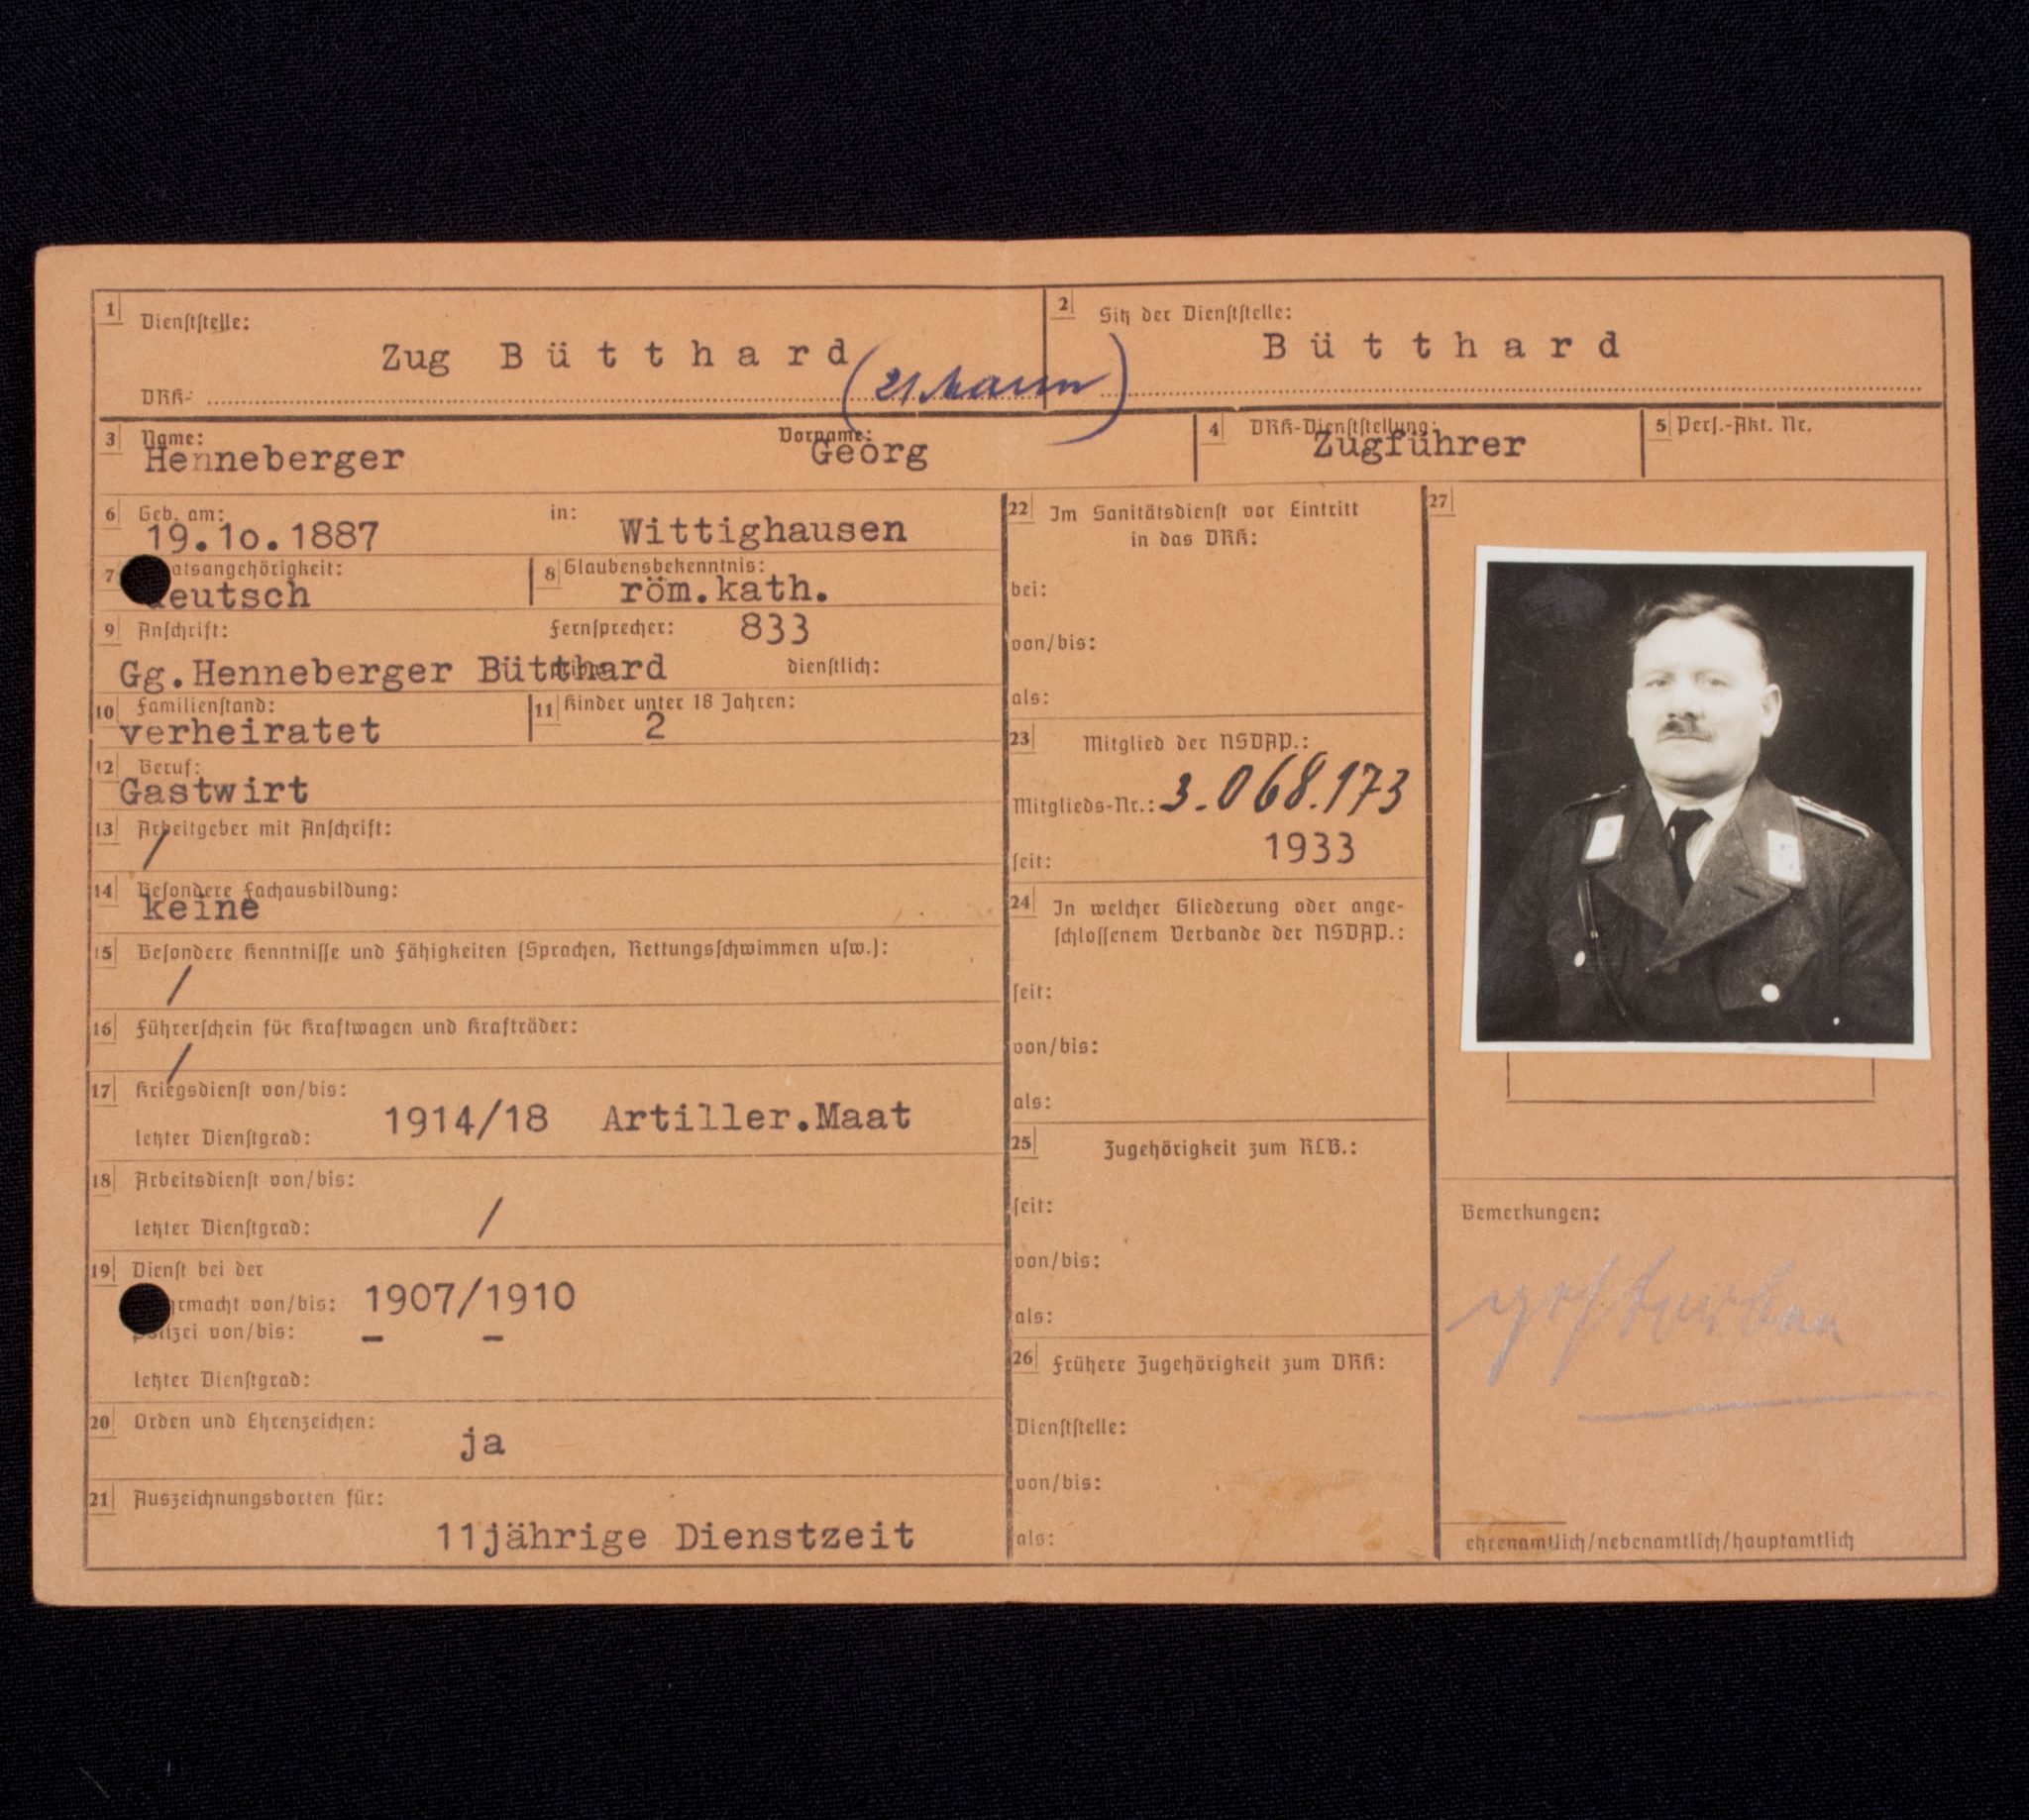 1 Dienststelle:
Zug Bütthard (21 Mann)
DRK-
2 Sitz der Dienststelle:
Bütthard
3 Name: Vorname:
Henneberger Georg
4 DRK-Dienststellung:
Zugführer
5 Pers.-Akt. Nr.
6 Geb. am: in:
19.1o.1887 Wittighausen
7 atsangehörigkeit:
deutsch
8 Glaubensbekenntnis:
röm.kath.
9 Anschrift: Fernsprecher: 833
Gg.Henneberger Bütthard dienstlich:
10 Familienstand:
verheiratet
11 Kinder unter 18 Jahren:
2
12 Beruf:
Gastwirt
13 Arbeitgeber mit Anschrift:
/
14 Besondere Fachausbildung:
keine
15 Besondere Kenntnisse und Fähigkeiten (Sprachen, Rettungsschwimmen usw.):
/
16 Führerschein für Kraftwagen und Krafträder:
/
17 Kriegsdienst von/bis:
1914/18 Artiller.Maat
letzter Dienstgrad:
18 Arbeitsdienst von/bis:
/
letzter Dienstgrad:
19 Dienst bei der
rmacht von/bis: 1907/1910
Polizei von/bis: – –
letzter Dienstgrad:
20 Orden und Ehrenzeichen:
ja
21 Auszeichnungsborten für:
11jährige Dienstzeit
22 Im Sanitätsdienst vor Eintritt
in das DRK:
bei:
von/bis:
als:
23 Mitglied der NSDAP.:
Mitglieds-Nr.: 3.068.173
seit: 1933
24 In welcher Gliederung oder ange-
schlossenem Verbande der NSDAP.:
seit:
von/bis:
als:
25 Zugehörigkeit zum RLB.:
seit:
von/bis:
als:
26 Frühere Zugehörigkeit zum DRK:
Dienststelle:
von/bis:
als:
27
Bemerkungen:
gestorben
ehrenamtlich/nebenamtlich/hauptamtlich